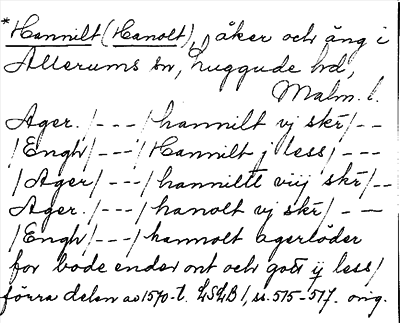 *Hannilt (Hanolt), åker och äng i
Allerums sn, Luggude hd,
Malm. l.
Ager. /---/ hannilt vj skr/--
/Engh/---/ Hannilt j less/---
/Ager/---/ hanniltt viij skr/--
Ager. /---/ hanolt vj skr/---
/Engh/---/ hannolt agerlöder
for bode ender ont och gott ij less/
förra delen av 1570-t. LSLB 1, ss. 515-517. orig.